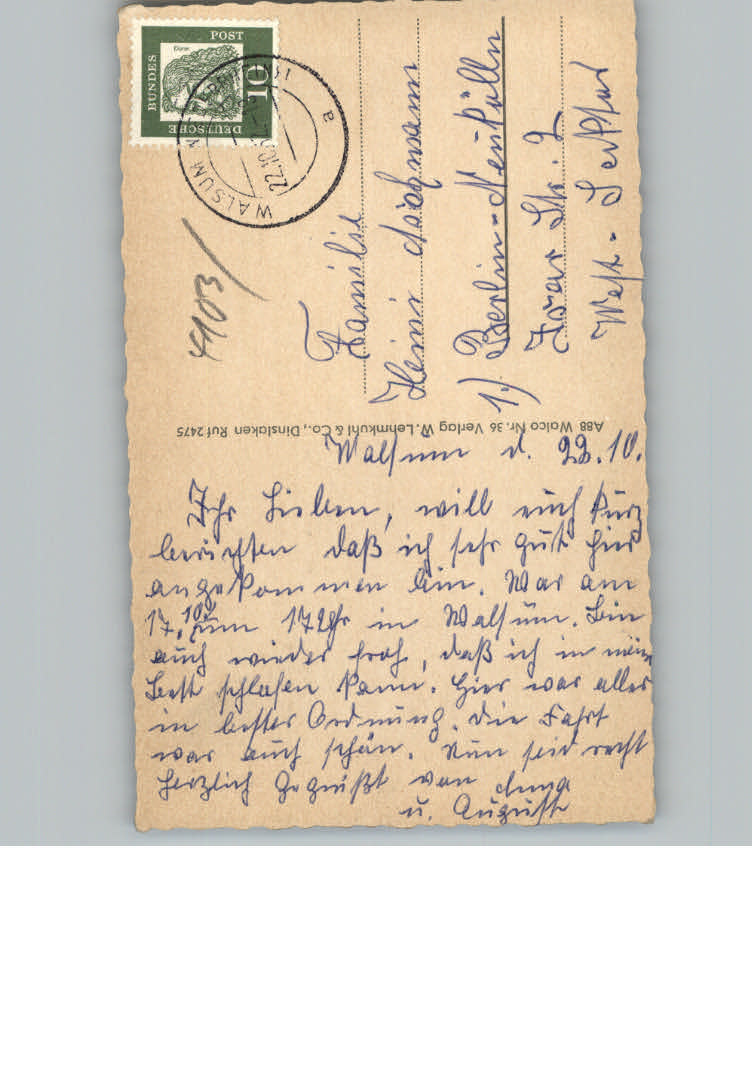 DEUTSCHE
BUNDES
POST
Dürer
10
WALSUM
22.10.
a
4103/
Familie
Heinz
1) Berlin-Neukölln
Isar Str. 2
West-Sektor
A88 Walco Nr. 36 Verlag W. Lehmkuhl & Co., Dinslaken Ruf 2475
Walsum d. 22.10.
Ihr Lieben, will euch kurz
berichten daß ich sehr gut hier
angekommen bin. War am
17.10. um 17 Uhr in Walsum. Bin
auch wieder froh, daß ich in mein
Bett schlafen kann. Hier war alles
in bester Ordnung. Die Fahrt
war auch schön. Nun seid recht
herzlich gegrüßt von
u. August